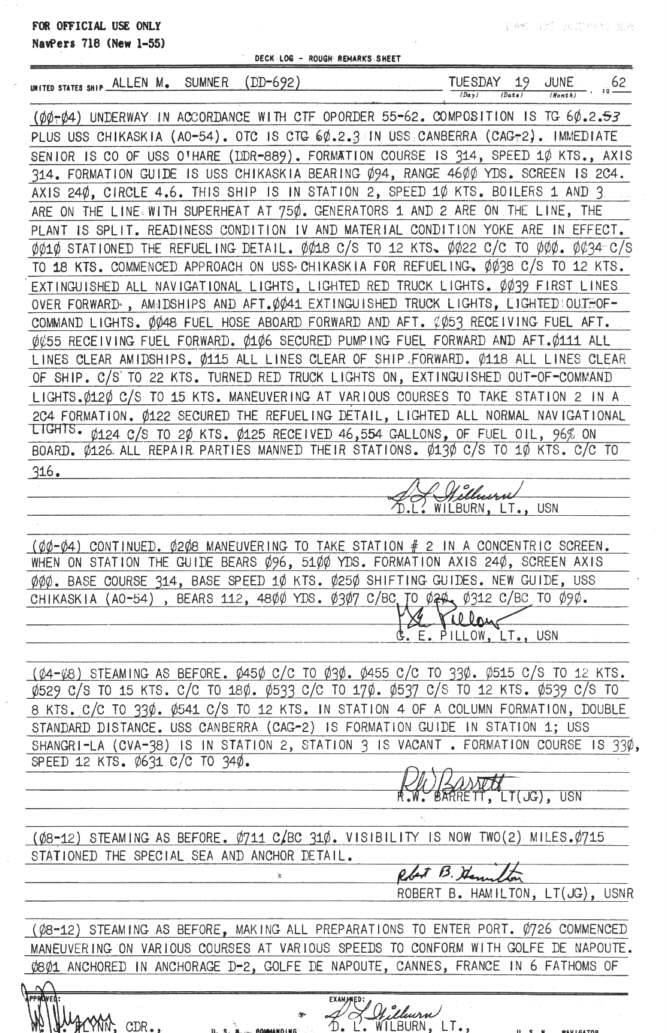 FOR OFFICIAL USE ONLY
NavPers 718 (New 1-55)
DECK LOG – ROUGH REMARKS SHEET
UNITED STATES SHIP ALLEN M. SUMNER (DD-692) TUESDAY 19 JUNE , 19 62
(Day) (Date) (Month)
(ØØ-Ø4) UNDERWAY IN ACCORDANCE WITH CTF OPORDER 55-62. COMPOSITION IS TG 6Ø.2.53
PLUS USS CHIKASKIA (AO-54). OTC IS CTG 6Ø.2.3 IN USS CANBERRA (CAG-2). IMMEDIATE
SENIOR IS CO OF USS O'HARE (DDR-889). FORMATION COURSE IS 314, SPEED 1Ø KTS., AXIS
314. FORMATION GUIDE IS USS CHIKASKIA BEARING Ø94, RANGE 46ØØ YDS. SCREEN IS 2C4.
AXIS 24Ø, CIRCLE 4.6. THIS SHIP IS IN STATION 2, SPEED 1Ø KTS. BOILERS 1 AND 3
ARE ON THE LINE WITH SUPERHEAT AT 75Ø. GENERATORS 1 AND 2 ARE ON THE LINE, THE
PLANT IS SPLIT. READINESS CONDITION IV AND MATERIAL CONDITION YOKE ARE IN EFFECT.
ØØ1Ø STATIONED THE REFUELING DETAIL. ØØ18 C/S TO 12 KTS. ØØ22 C/C TO ØØØ. ØØ34 C/S
TO 18 KTS. COMMENCED APPROACH ON USS CHIKASKIA FOR REFUELING. ØØ38 C/S TO 12 KTS.
EXTINGUISHED ALL NAVIGATIONAL LIGHTS, LIGHTED RED TRUCK LIGHTS. ØØ39 FIRST LINES
OVER FORWARD , AMIDSHIPS AND AFT.ØØ41 EXTINGUISHED TRUCK LIGHTS, LIGHTED OUT-OF-
COMMAND LIGHTS. ØØ48 FUEL HOSE ABOARD FORWARD AND AFT. ØØ53 RECEIVING FUEL AFT.
ØØ55 RECEIVING FUEL FORWARD. Ø1Ø6 SECURED PUMPING FUEL FORWARD AND AFT.Ø111 ALL
LINES CLEAR AMIDSHIPS. Ø115 ALL LINES CLEAR OF SHIP FORWARD. Ø118 ALL LINES CLEAR
OF SHIP. C/S TO 22 KTS. TURNED RED TRUCK LIGHTS ON, EXTINGUISHED OUT-OF-COMMAND
LIGHTS.Ø12Ø C/S TO 15 KTS. MANEUVERING AT VARIOUS COURSES TO TAKE STATION 2 IN A
2C4 FORMATION. Ø122 SECURED THE REFUELING DETAIL, LIGHTED ALL NORMAL NAVIGATIONAL
LIGHTS. Ø124 C/S TO 2Ø KTS. Ø125 RECEIVED 46,554 GALLONS, OF FUEL OIL, 96% ON
BOARD. Ø126 ALL REPAIR PARTIES MANNED THEIR STATIONS. Ø13Ø C/S TO 1Ø KTS. C/C TO
316.
D L Wilburn
D.L. WILBURN, LT., USN
(ØØ-Ø4) CONTINUED. Ø2Ø8 MANEUVERING TO TAKE STATION # 2 IN A CONCENTRIC SCREEN.
WHEN ON STATION THE GUIDE BEARS Ø96, 51ØØ YDS. FORMATION AXIS 24Ø, SCREEN AXIS
ØØØ. BASE COURSE 314, BASE SPEED 1Ø KTS. Ø25Ø SHIFTING GUIDES. NEW GUIDE, USS
CHIKASKIA (AO-54) , BEARS 112, 48ØØ YDS. Ø3Ø7 C/BC TO Ø2Ø. Ø312 C/BC TO Ø9Ø.
G E Pillow
G. E. PILLOW, LT., USN
(Ø4-Ø8) STEAMING AS BEFORE. Ø45Ø C/C TO Ø3Ø. Ø455 C/C TO 33Ø. Ø515 C/S TO 12 KTS.
Ø529 C/S TO 15 KTS. C/C TO 18Ø. Ø533 C/C TO 17Ø. Ø537 C/S TO 12 KTS. Ø539 C/S TO
8 KTS. C/C TO 33Ø. Ø541 C/S TO 12 KTS. IN STATION 4 OF A COLUMN FORMATION, DOUBLE
STANDARD DISTANCE. USS CANBERRA (CAG-2) IS FORMATION GUIDE IN STATION 1; USS
SHANGRI-LA (CVA-38) IS IN STATION 2, STATION 3 IS VACANT . FORMATION COURSE IS 33Ø,
SPEED 12 KTS. Ø631 C/C TO 34Ø.
RW Barrett
R.W. BARRETT, LT(JG), USN
(Ø8-12) STEAMING AS BEFORE. Ø711 C/BC 31Ø. VISIBILITY IS NOW TWO(2) MILES.Ø715
STATIONED THE SPECIAL SEA AND ANCHOR DETAIL.
Robert B. Hamilton
ROBERT B. HAMILTON, LT(JG), USNR
(Ø8-12) STEAMING AS BEFORE, MAKING ALL PREPARATIONS TO ENTER PORT. Ø726 COMMENCED
MANEUVERING ON VARIOUS COURSES AT VARIOUS SPEEDS TO CONFORM WITH GOLFE DE NAPOUTE.
Ø8Ø1 ANCHORED IN ANCHORAGE D-2, GOLFE DE NAPOUTE, CANNES, FRANCE IN 6 FATHOMS OF
APPROVED: EXAMINED:
D L Wilburn
CDR., U. S. N. COMMANDING D. L. WILBURN, LT., U. S. N. NAVIGATOR